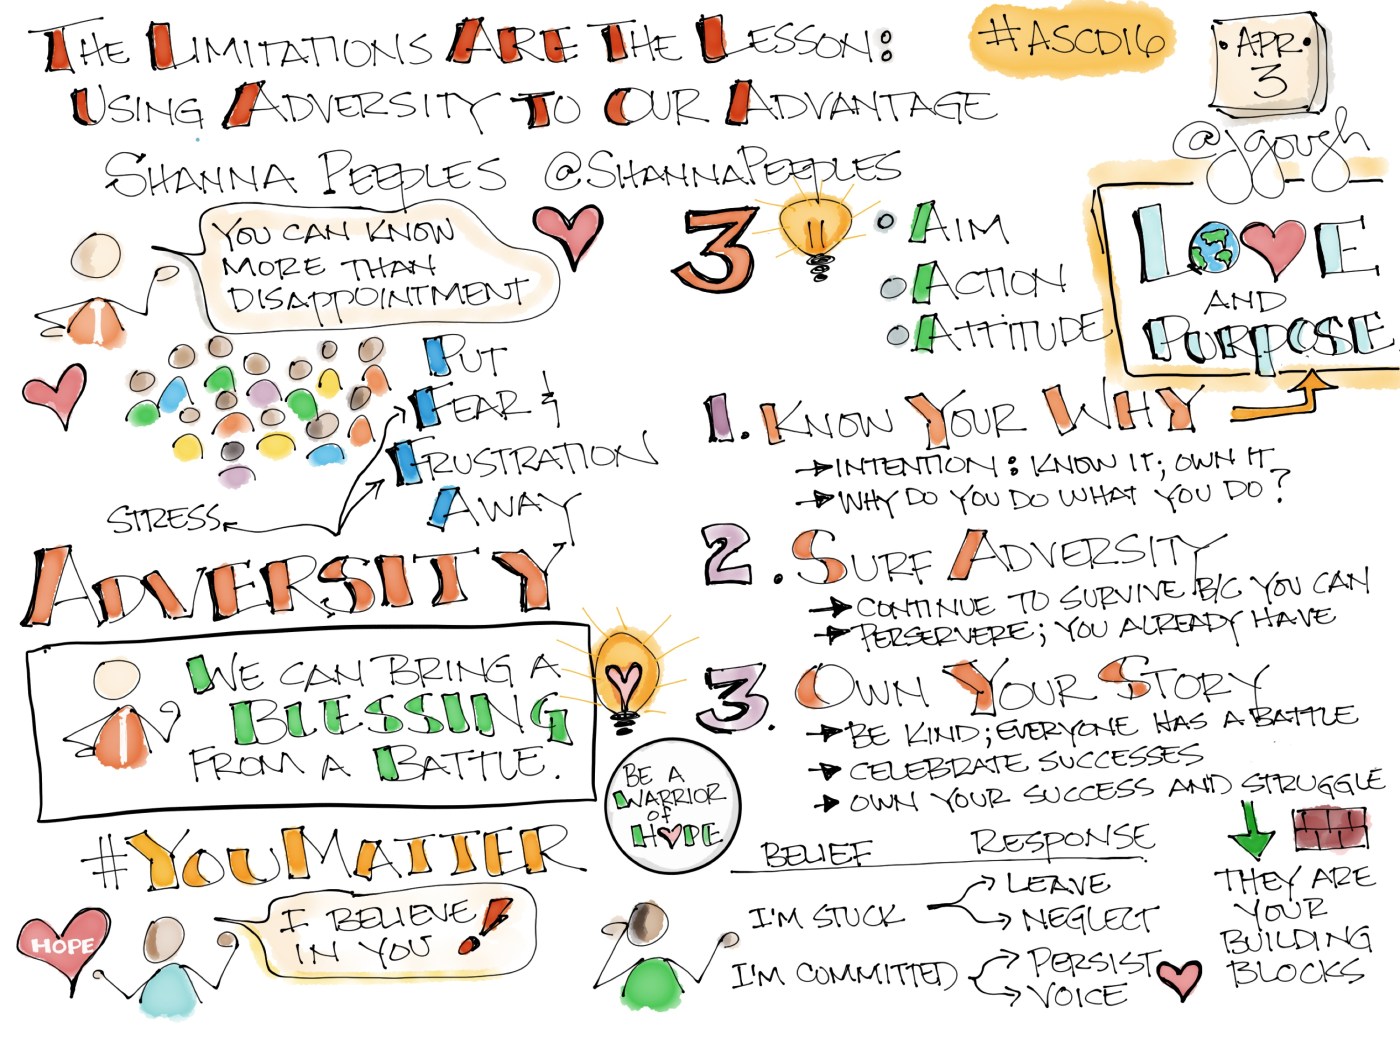 The Limitations Are The Lesson:
Using Adversity To Our Advantage
Shanna Peeples @ShannaPeeples
#ASCD16
APR
3
@jgough
You can know
more than
disappointment
Put
Fear &
Frustration
Away
Stress
Adversity
We can bring a
Blessing
from a Battle.
#YouMatter
HOPE
I believe
in you!
3
Aim
Action
Attitude
Love
and
Purpose
1. Know Your Why
Intention: know it; own it
Why do you do what you do?
2. Surf Adversity
Continue to survive b/c you can
Perservere; you already have
3. Own Your Story
Be kind; everyone has a battle
Celebrate successes
Own your success and struggle
They are
your
building
blocks
Be a
Warrior
of
Hope
Belief Response
I'm stuck Leave
Neglect
I'm committed Persist
Voice